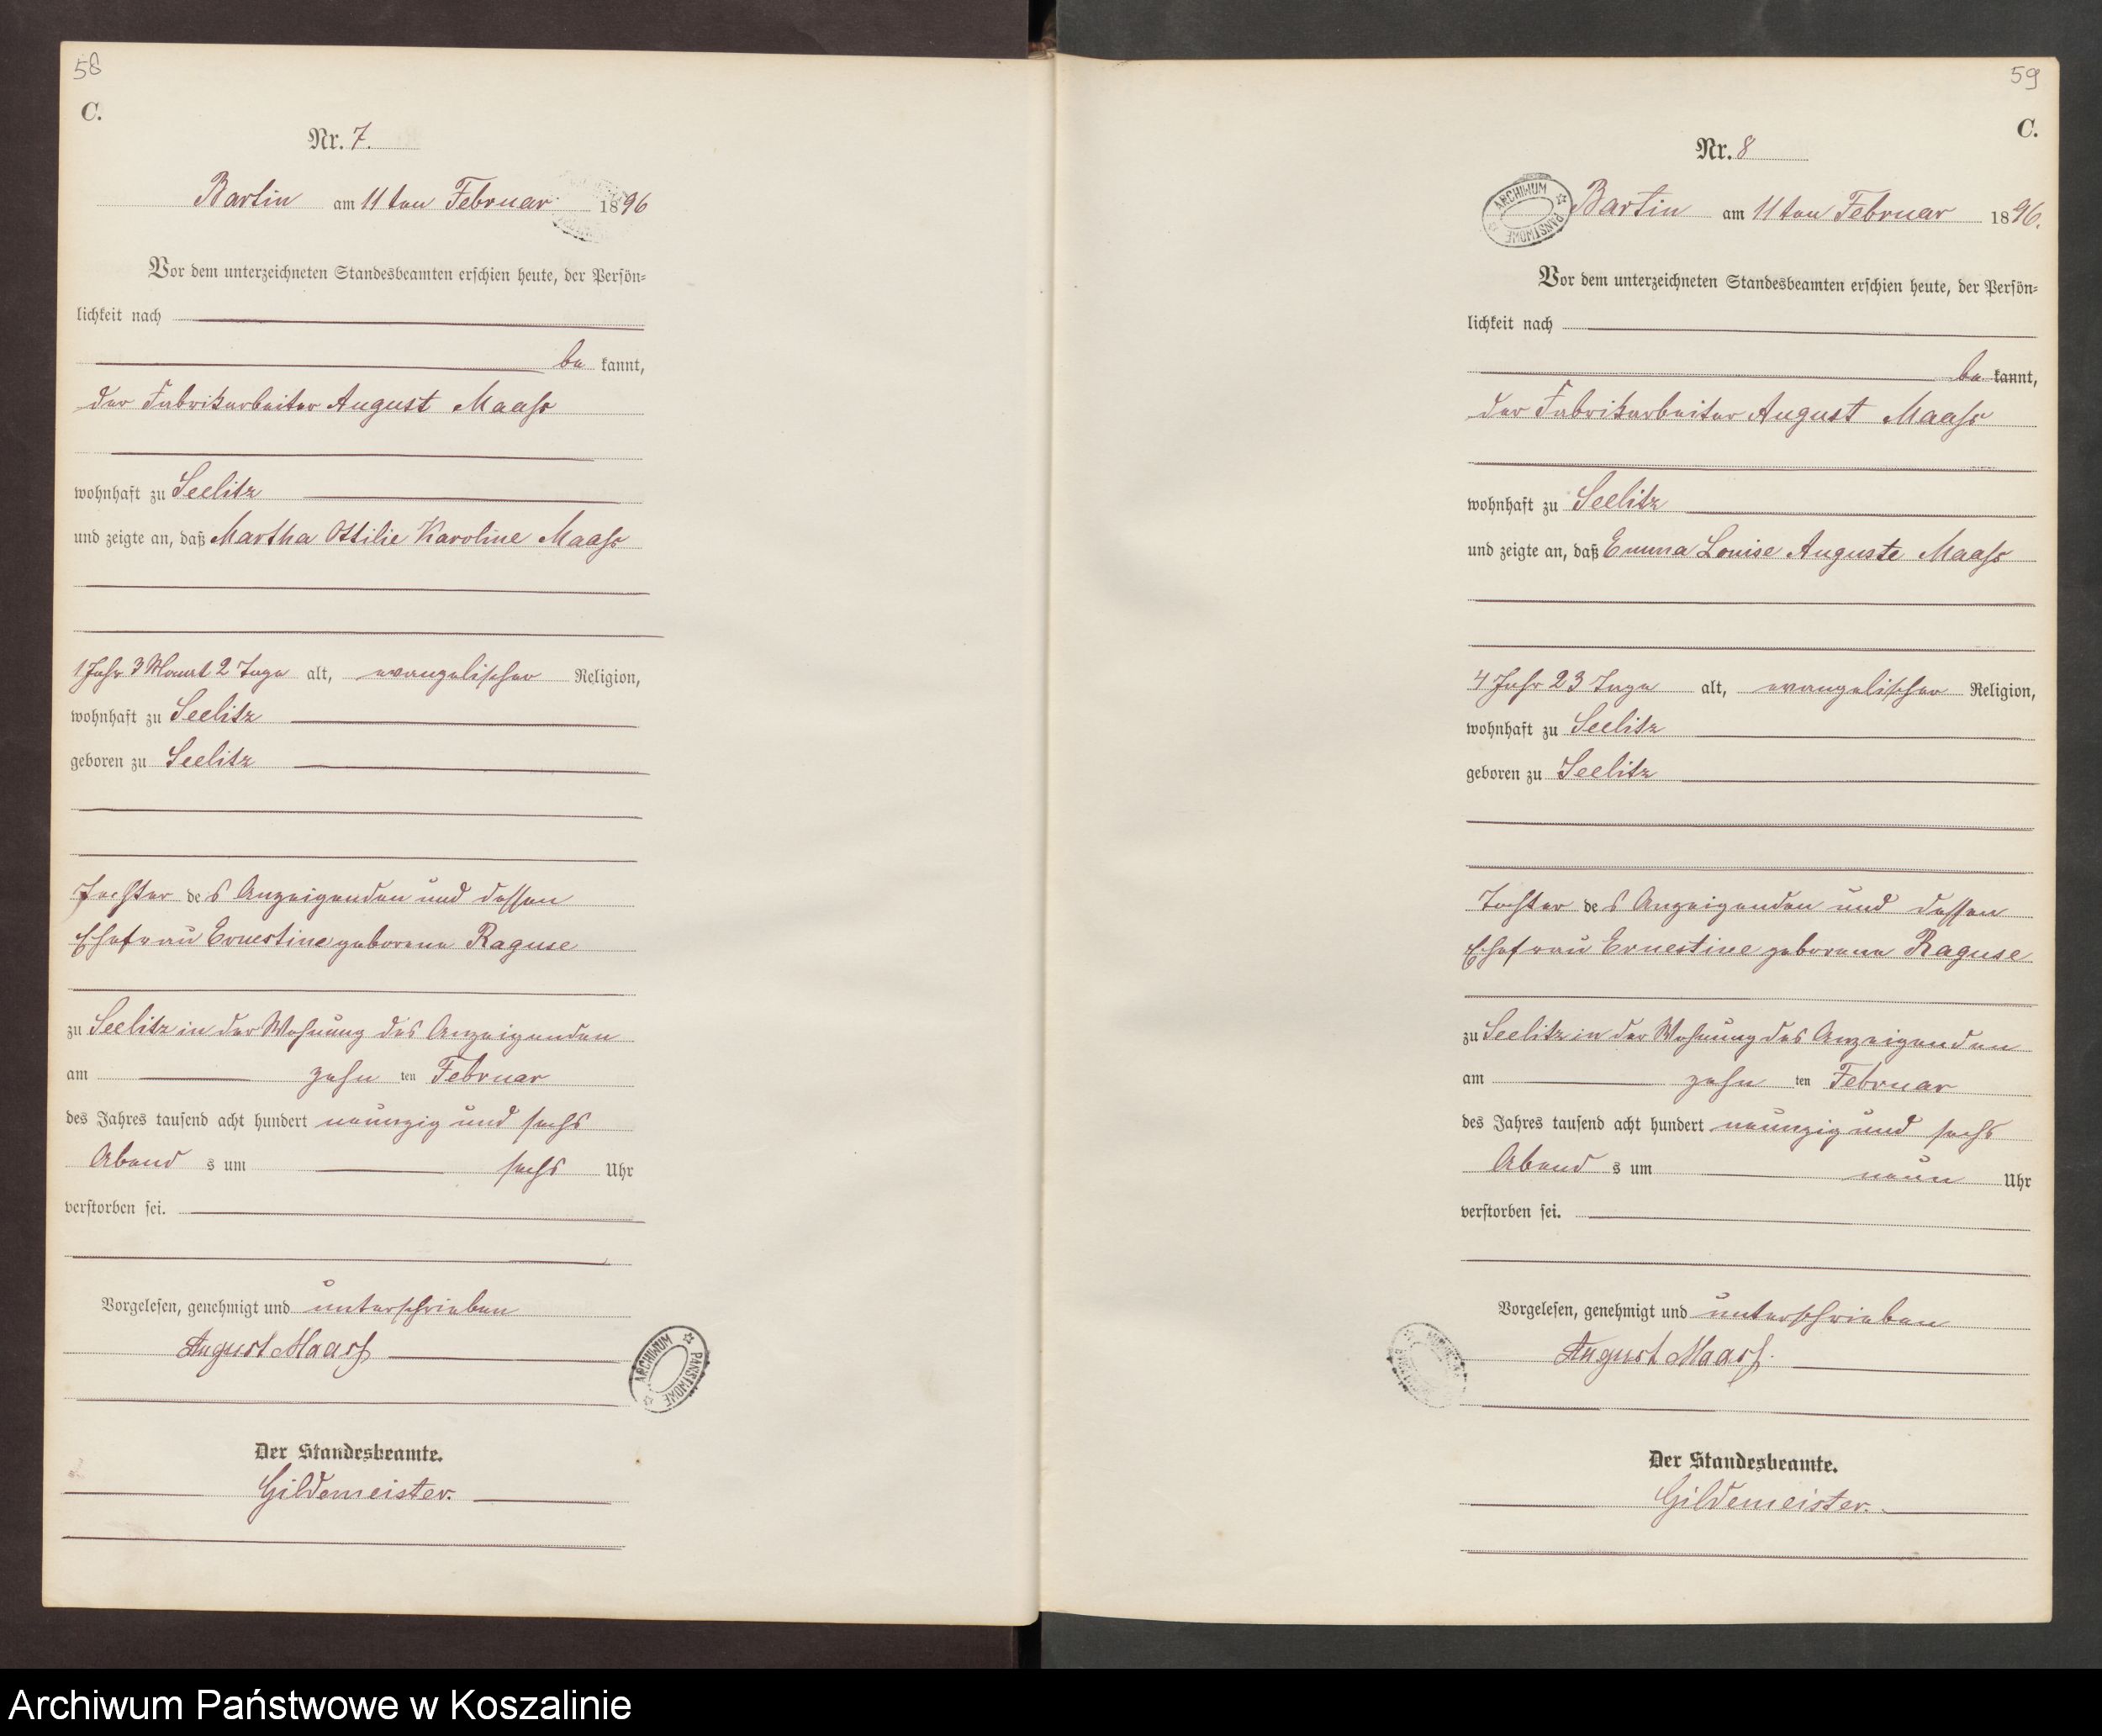 58
C.
Nr. 7.
Bartin am 11ten Februar 1896
Vor dem unterzeichneten Standesbeamten erschien heute, der Persön-
lichkeit nach
be kannt,
der Fabrikarbeiter August Maaß
wohnhaft zu Seelitz
und zeigte an, daß Martha Ottilie Karoline Maaß
1 Jahr 3 Monat 2 Tage alt, evangelischer Religion,
wohnhaft zu Seelitz
geboren zu Seelitz
Tochter des Anzeigenden und dessen
Ehefrau Ernestine geborene Raguse
zu Seelitz in der Wohnung des Anzeigenden
am zehn ten Februar
des Jahres tausend acht hundert neunzig und sechs
Abend s um sechs Uhr
verstorben sei.
Vorgelesen, genehmigt und unterschrieben
August Maass
ARCHIWUM PAŃSTWOWE
Der Standesbeamte.
Gildemeister.
59
C.
Nr. 8
ARCHIWUM PAŃSTWOWE
Bartin am 11ten Februar 1896.
Vor dem unterzeichneten Standesbeamten erschien heute, der Persön-
lichkeit nach
be kannt,
der Fabrikarbeiter August Maaß
wohnhaft zu Seelitz
und zeigte an, daß Emma Louise Auguste Maaß
4 Jahr 23 Tage alt, evangelischer Religion,
wohnhaft zu Seelitz
geboren zu Seelitz
Tochter des Anzeigenden und dessen
Ehefrau Ernestine geborene Raguse
zu Seelitz in der Wohnung des Anzeigenden
am zehn ten Februar
des Jahres tausend acht hundert neunzig und sechs
Abend s um neun Uhr
verstorben sei.
Vorgelesen, genehmigt und unterschrieben
August Maass.
Der Standesbeamte.
Gildemeister.
Archiwum Państwowe w Koszalinie